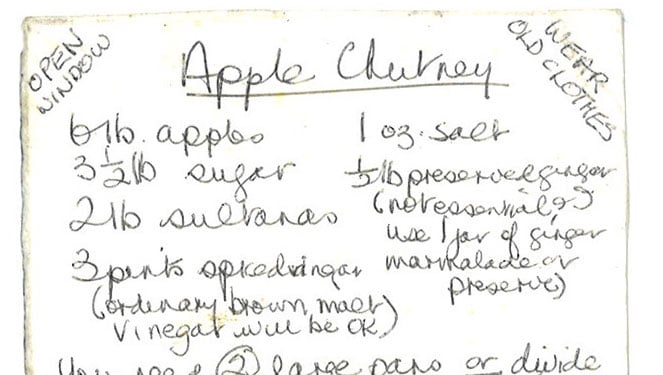 OPEN
WINDOW
WEAR
OLD CLOTHES
Apple Chutney
6 lb. apples
3 1/2 lb sugar
2 lb sultanas
3 pints spiced vinegar
(ordinary brown malt
vinegar will be OK)
1 oz. salt
1/2 lb preserved ginger
(not essential or)
use 1 jar of ginger
marmalade or
preserve)
You need (2) large pans or divide